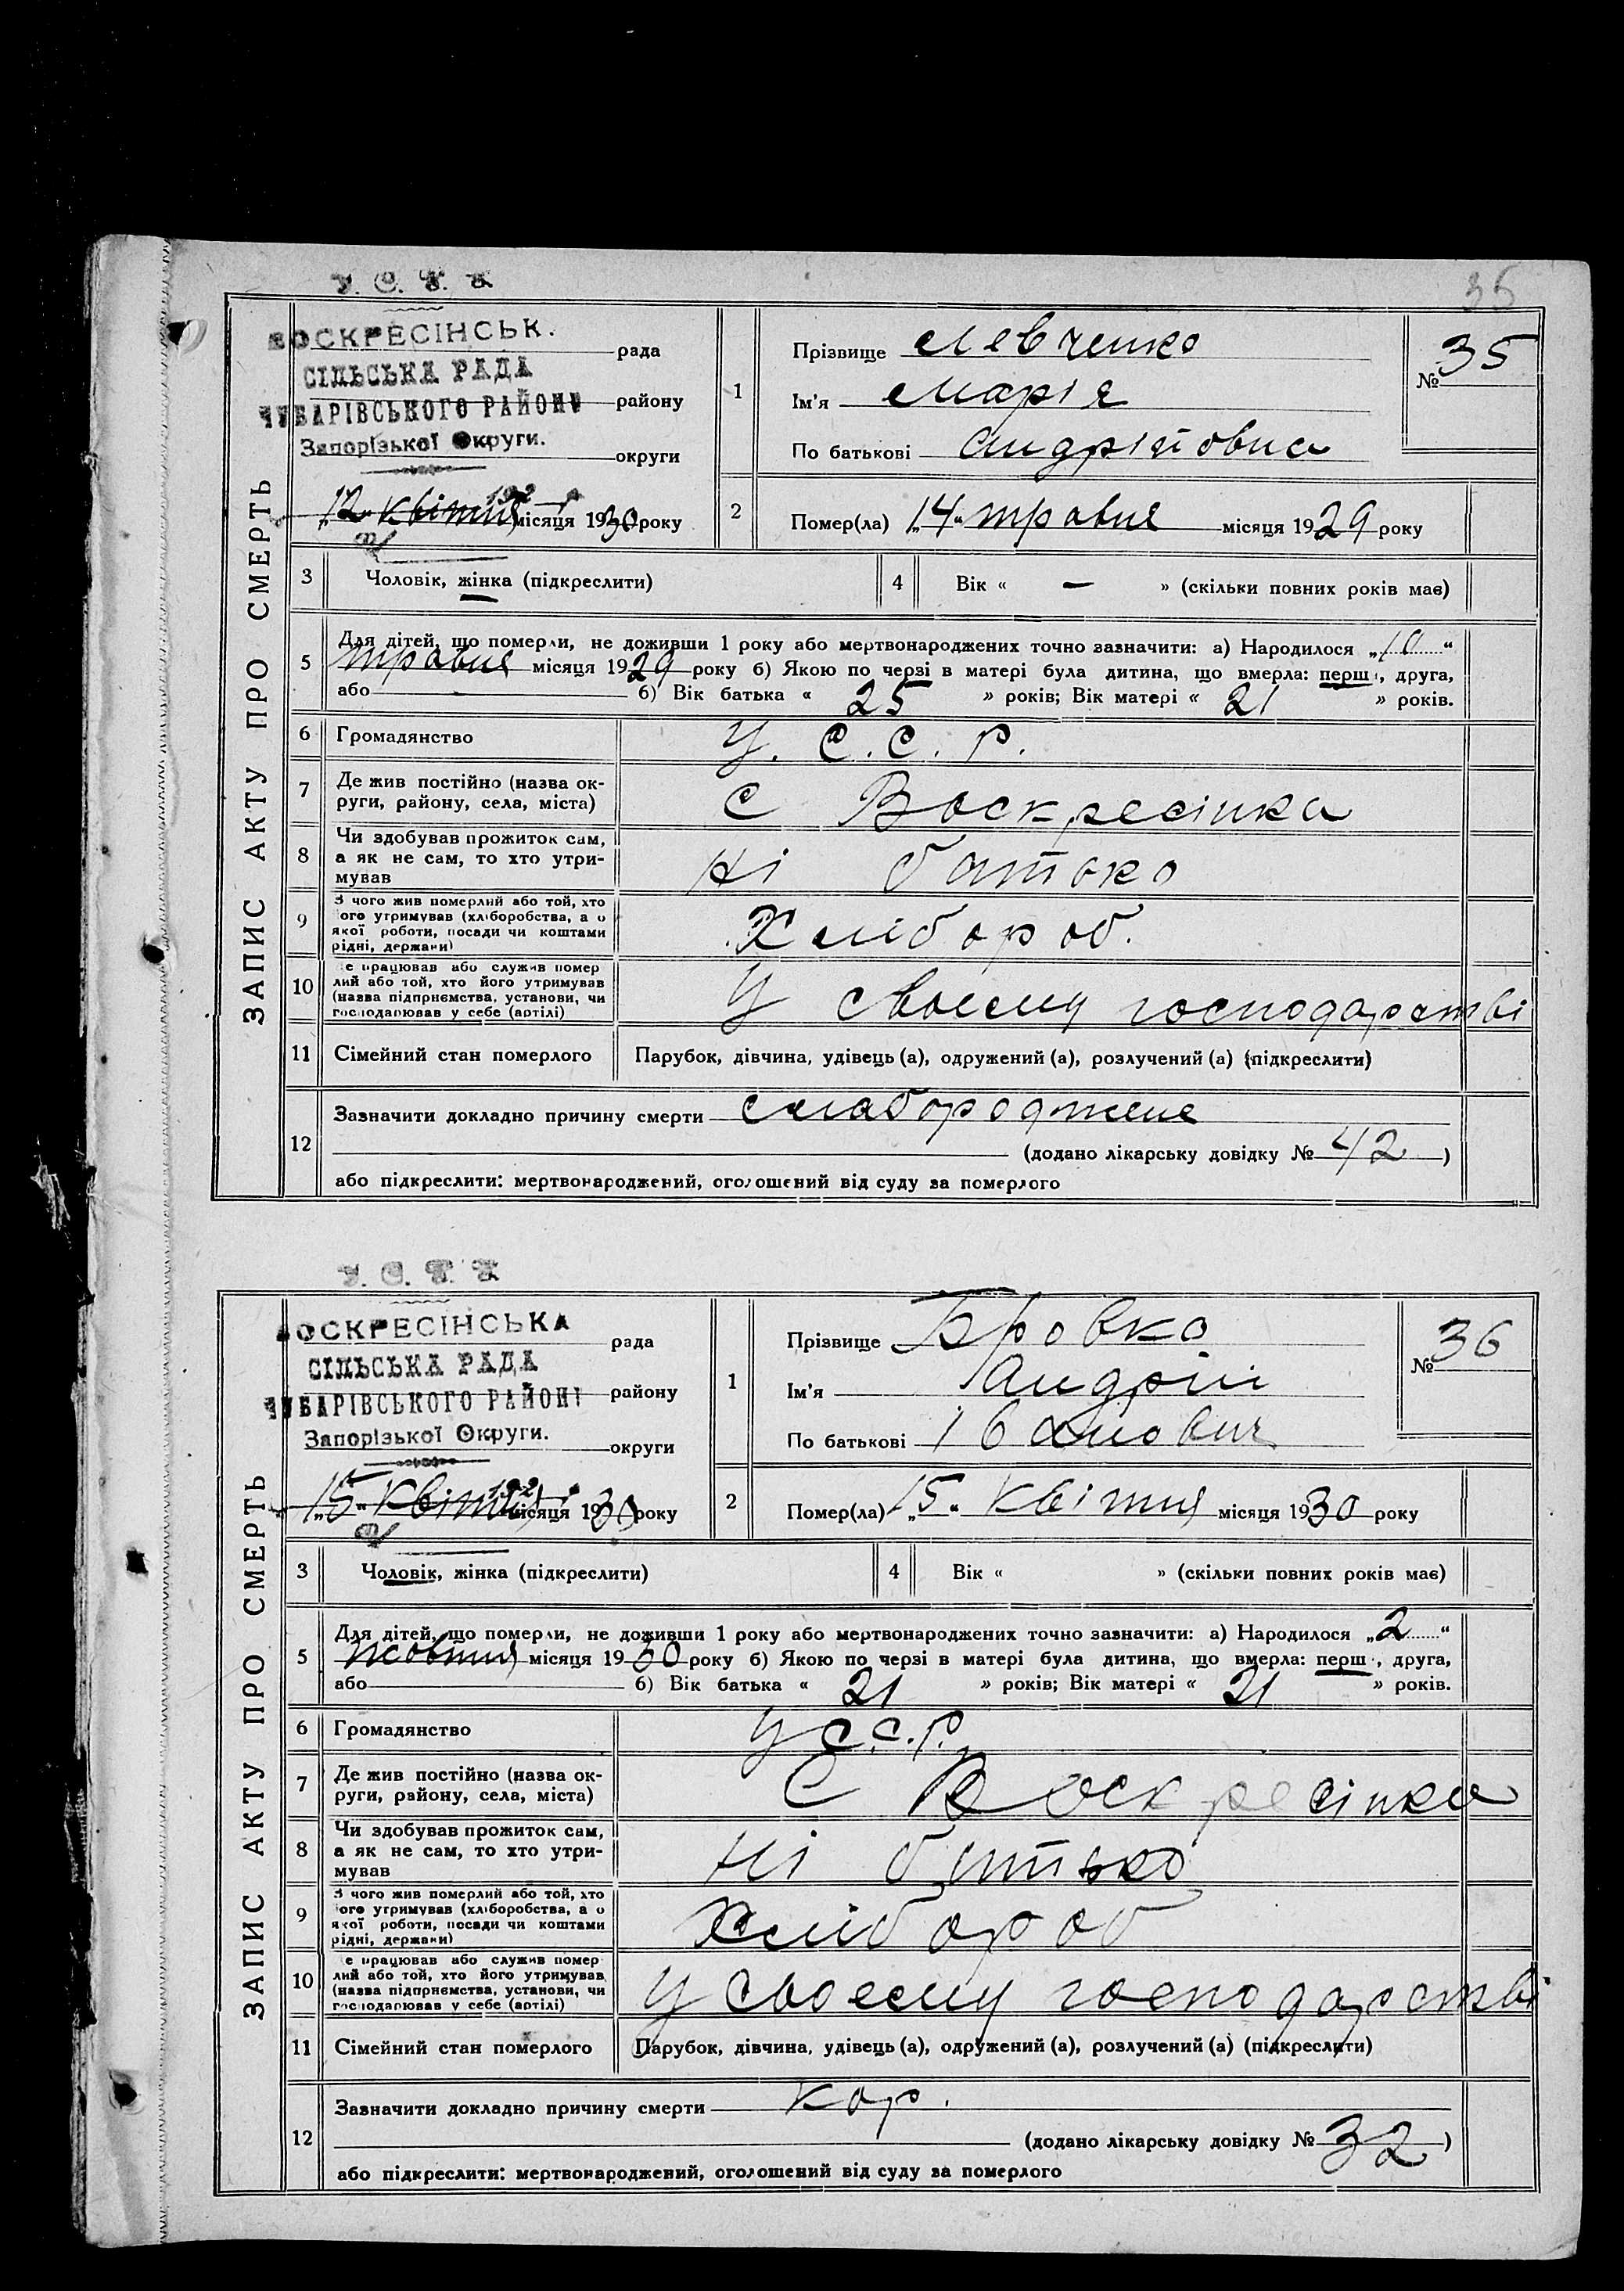 36
У. С. Р. Р.
ВОСКРЕСІНСЬК. рада
СІЛЬСЬКА РАДА
ЧУБАРІВСЬКОГО РАЙОНУ району
Запорізької Округи. округи
192
„12“ квітня місяця 1930 року
ЗАПИС АКТУ ПРО СМЕРТЬ
1 Прізвище Левченко
Ім'я Марія
По батькові Андрійовна
№ 35
2 Помер(ла) „14“ травня місяця 1929 року
3 Чоловік, жінка (підкреслити)
4 Вік « — » (скільки повних років має)
5 Для дітей, що померли, не доживши 1 року або мертвонароджених точно зазначити: а) Народилося „10“
травня місяця 1929 року б) Якою по черзі в матері була дитина, що вмерла: перш, друга,
або б) Вік батька « 25 » років; Вік матері « 21 » років.
6 Громадянство У. С. С. Р.
7 Де жив постійно (назва округи, району, села, міста) С Воскресінка
8 Чи здобував прожиток сам, а як не сам, то хто утримував Ні батько
9 З чого жив померлий або той, хто його утримував (хліборобства, а о якої роботи, посади чи коштами рідні, держави) Хлібороб.
10 Де працював або служив померлий або той, хто його утримував (назва підприємства, установи, чи господарював у себе (артілі) У своєму господарстві
11 Сімейний стан померлого Парубок, дівчина, удівець (а), одружений (а), розлучений (а) (підкреслити)
12 Зазначити докладно причину смерти слабороджене
(додано лікарську довідку № 42)
або підкреслити: мертвонароджений, оголошений від суду за померлого
У. С. Р. Р.
ВОСКРЕСІНСЬКА рада
СІЛЬСЬКА РАДА
ЧУБАРІВСЬКОГО РАЙОНУ району
Запорізької Округи. округи
192
„15“ квітня місяця 1930 року
ЗАПИС АКТУ ПРО СМЕРТЬ
1 Прізвище Бровко
Ім'я Андрій
По батькові Іванович
№ 36
2 Помер(ла) „15“ квітня місяця 1930 року
3 Чоловік, жінка (підкреслити)
4 Вік « » (скільки повних років має)
5 Для дітей, що померли, не доживши 1 року або мертвонароджених точно зазначити: а) Народилося „2“
жовтня місяця 1930 року б) Якою по черзі в матері була дитина, що вмерла: перш, друга,
або б) Вік батька « 21 » років; Вік матері « 21 » років.
6 Громадянство У С.С.Р.
7 Де жив постійно (назва округи, району, села, міста) С Воскресінка
8 Чи здобував прожиток сам, а як не сам, то хто утримував Ні батько
9 З чого жив померлий або той, хто його утримував (хліборобства, а о якої роботи, посади чи коштами рідні, держави) Хлібороб
10 Де працював або служив померлий або той, хто його утримував (назва підприємства, установи, чи господарював у себе (артілі) У своєму господарстві
11 Сімейний стан померлого Парубок, дівчина, удівець (а), одружений (а), розлучений (а) (підкреслити)
12 Зазначити докладно причину смерти кор.
(додано лікарську довідку № 32)
або підкреслити: мертвонароджений, оголошений від суду за померлого